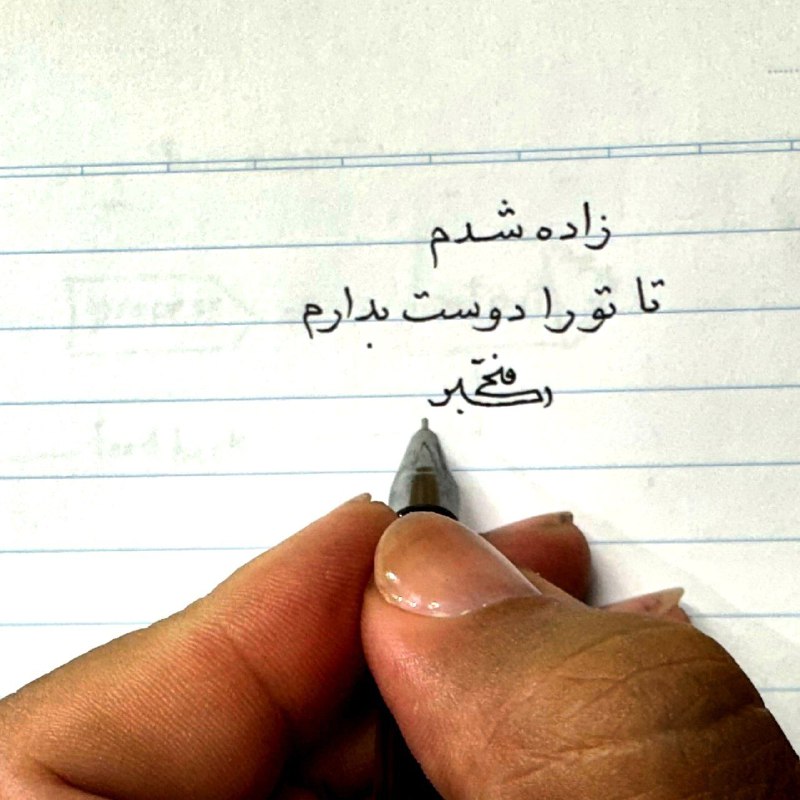 زاده شدم
تا تو را دوست بدارم